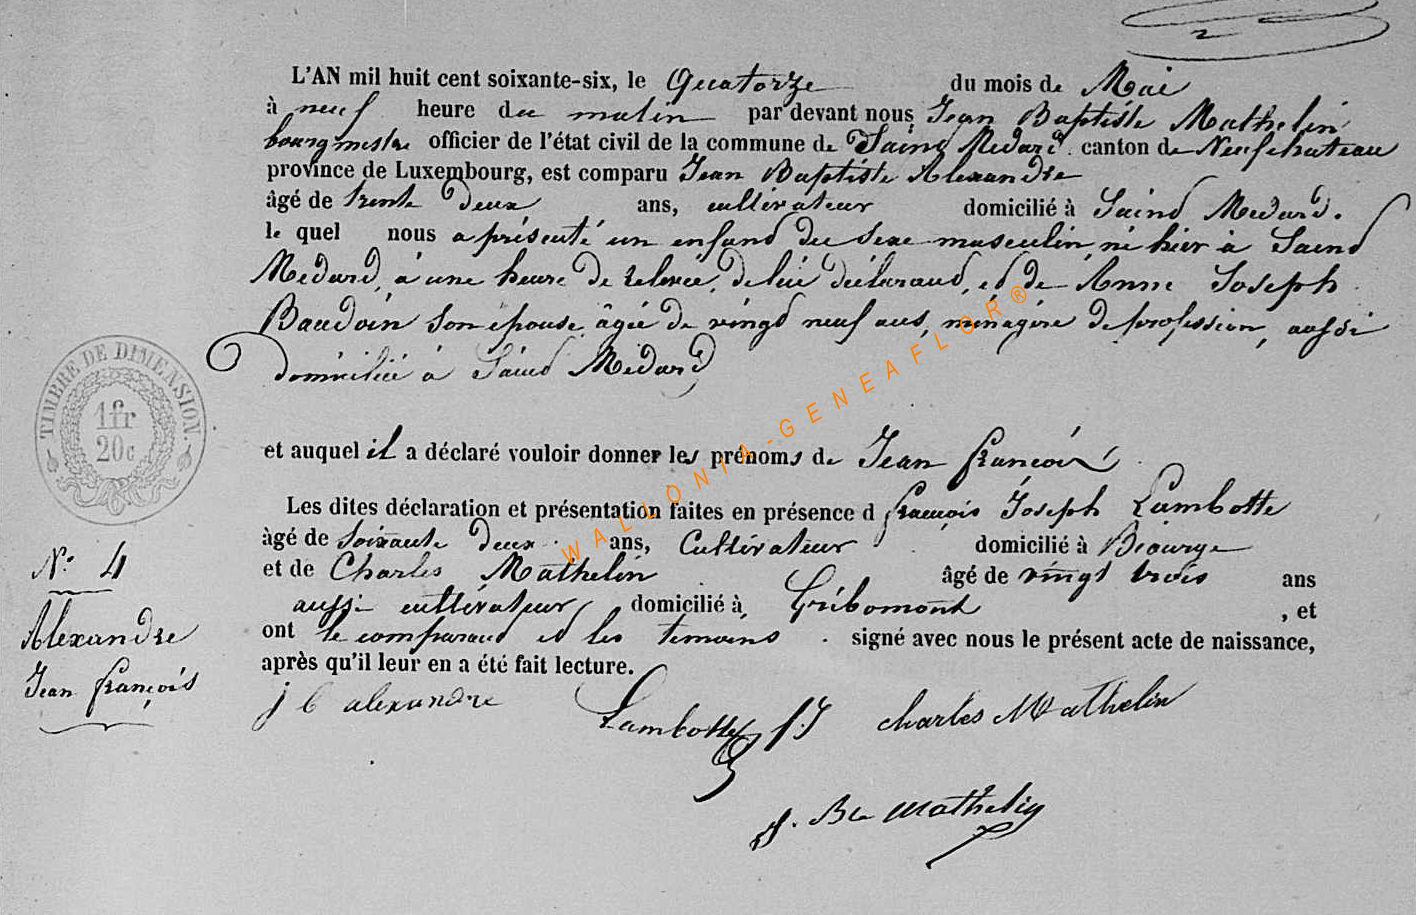 L'AN mil huit cent soixante-six, le Quatorze du mois de Mai
à neuf heure du matin par devant nous Jean Baptiste Mathelin
bourgmestre officier de l'état civil de la commune de Saint Médard canton de Neufchateau
province de Luxembourg, est comparu Jean Baptiste Alexandre
âgé de trente deux ans, cultivateur domicilié à Saind Medard.
le quel nous a présenté un enfand du sexe masculin, né hier à Saind
Medard, à une heure de relevée, de lui déclarand, et de Anne Joseph
Baudoin son épouse, âgée de vingd neuf ans, ménagère de profession, aussi
domiciliée à Saind Médard
et auquel il a déclaré vouloir donner les prénoms de Jean françois
Les dites déclaration et présentation faites en présence d françois Joseph Lambotte
âgé de soixante deux ans, Cultivateur domicilié à Biourge
et de Charles Mathelin âgé de vingt trois ans
aussi cultivateur domicilié à Gribomont, et
ont le comparand et les temoins signé avec nous le présent acte de naissance,
après qu'il leur en a été fait lecture.
j b alexandre Lambotte f. J charles Mathelin
J. Bte Mathelin
TIMBRE DE DIMENSION.
1fr
20c
N° 4
Alexandre
Jean françois
WALLONIA-GENEAFLOR®